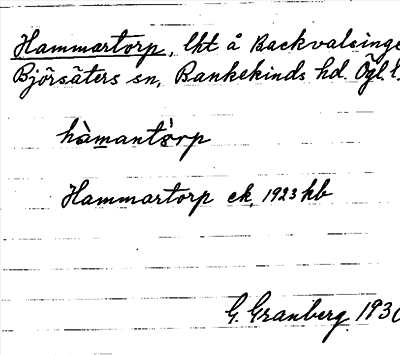 Hammartorp, lht å Backvalsinge
Björsäters sn, Bankekinds hd. Ögl. l.
hàmantòrp
Hammartorp ek, 1923 hb
G. Granberg 193